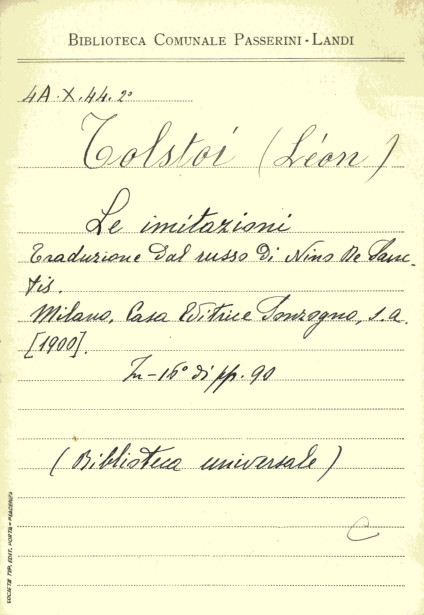 BIBLIOTECA COMUNALE PASSERINI-LANDI
4A.X.44.2°
Tolstoi (Léon)
Le imitazioni
Traduzione dal russo di Nino De Sanc-
tis.
Milano, Casa Editrice Sonzogno, s.a.
[1900].
In-16° di pp. 90
(Biblioteca universale)
C
SOCIETÀ TIP. EDIT. PORTA - PIACENZA